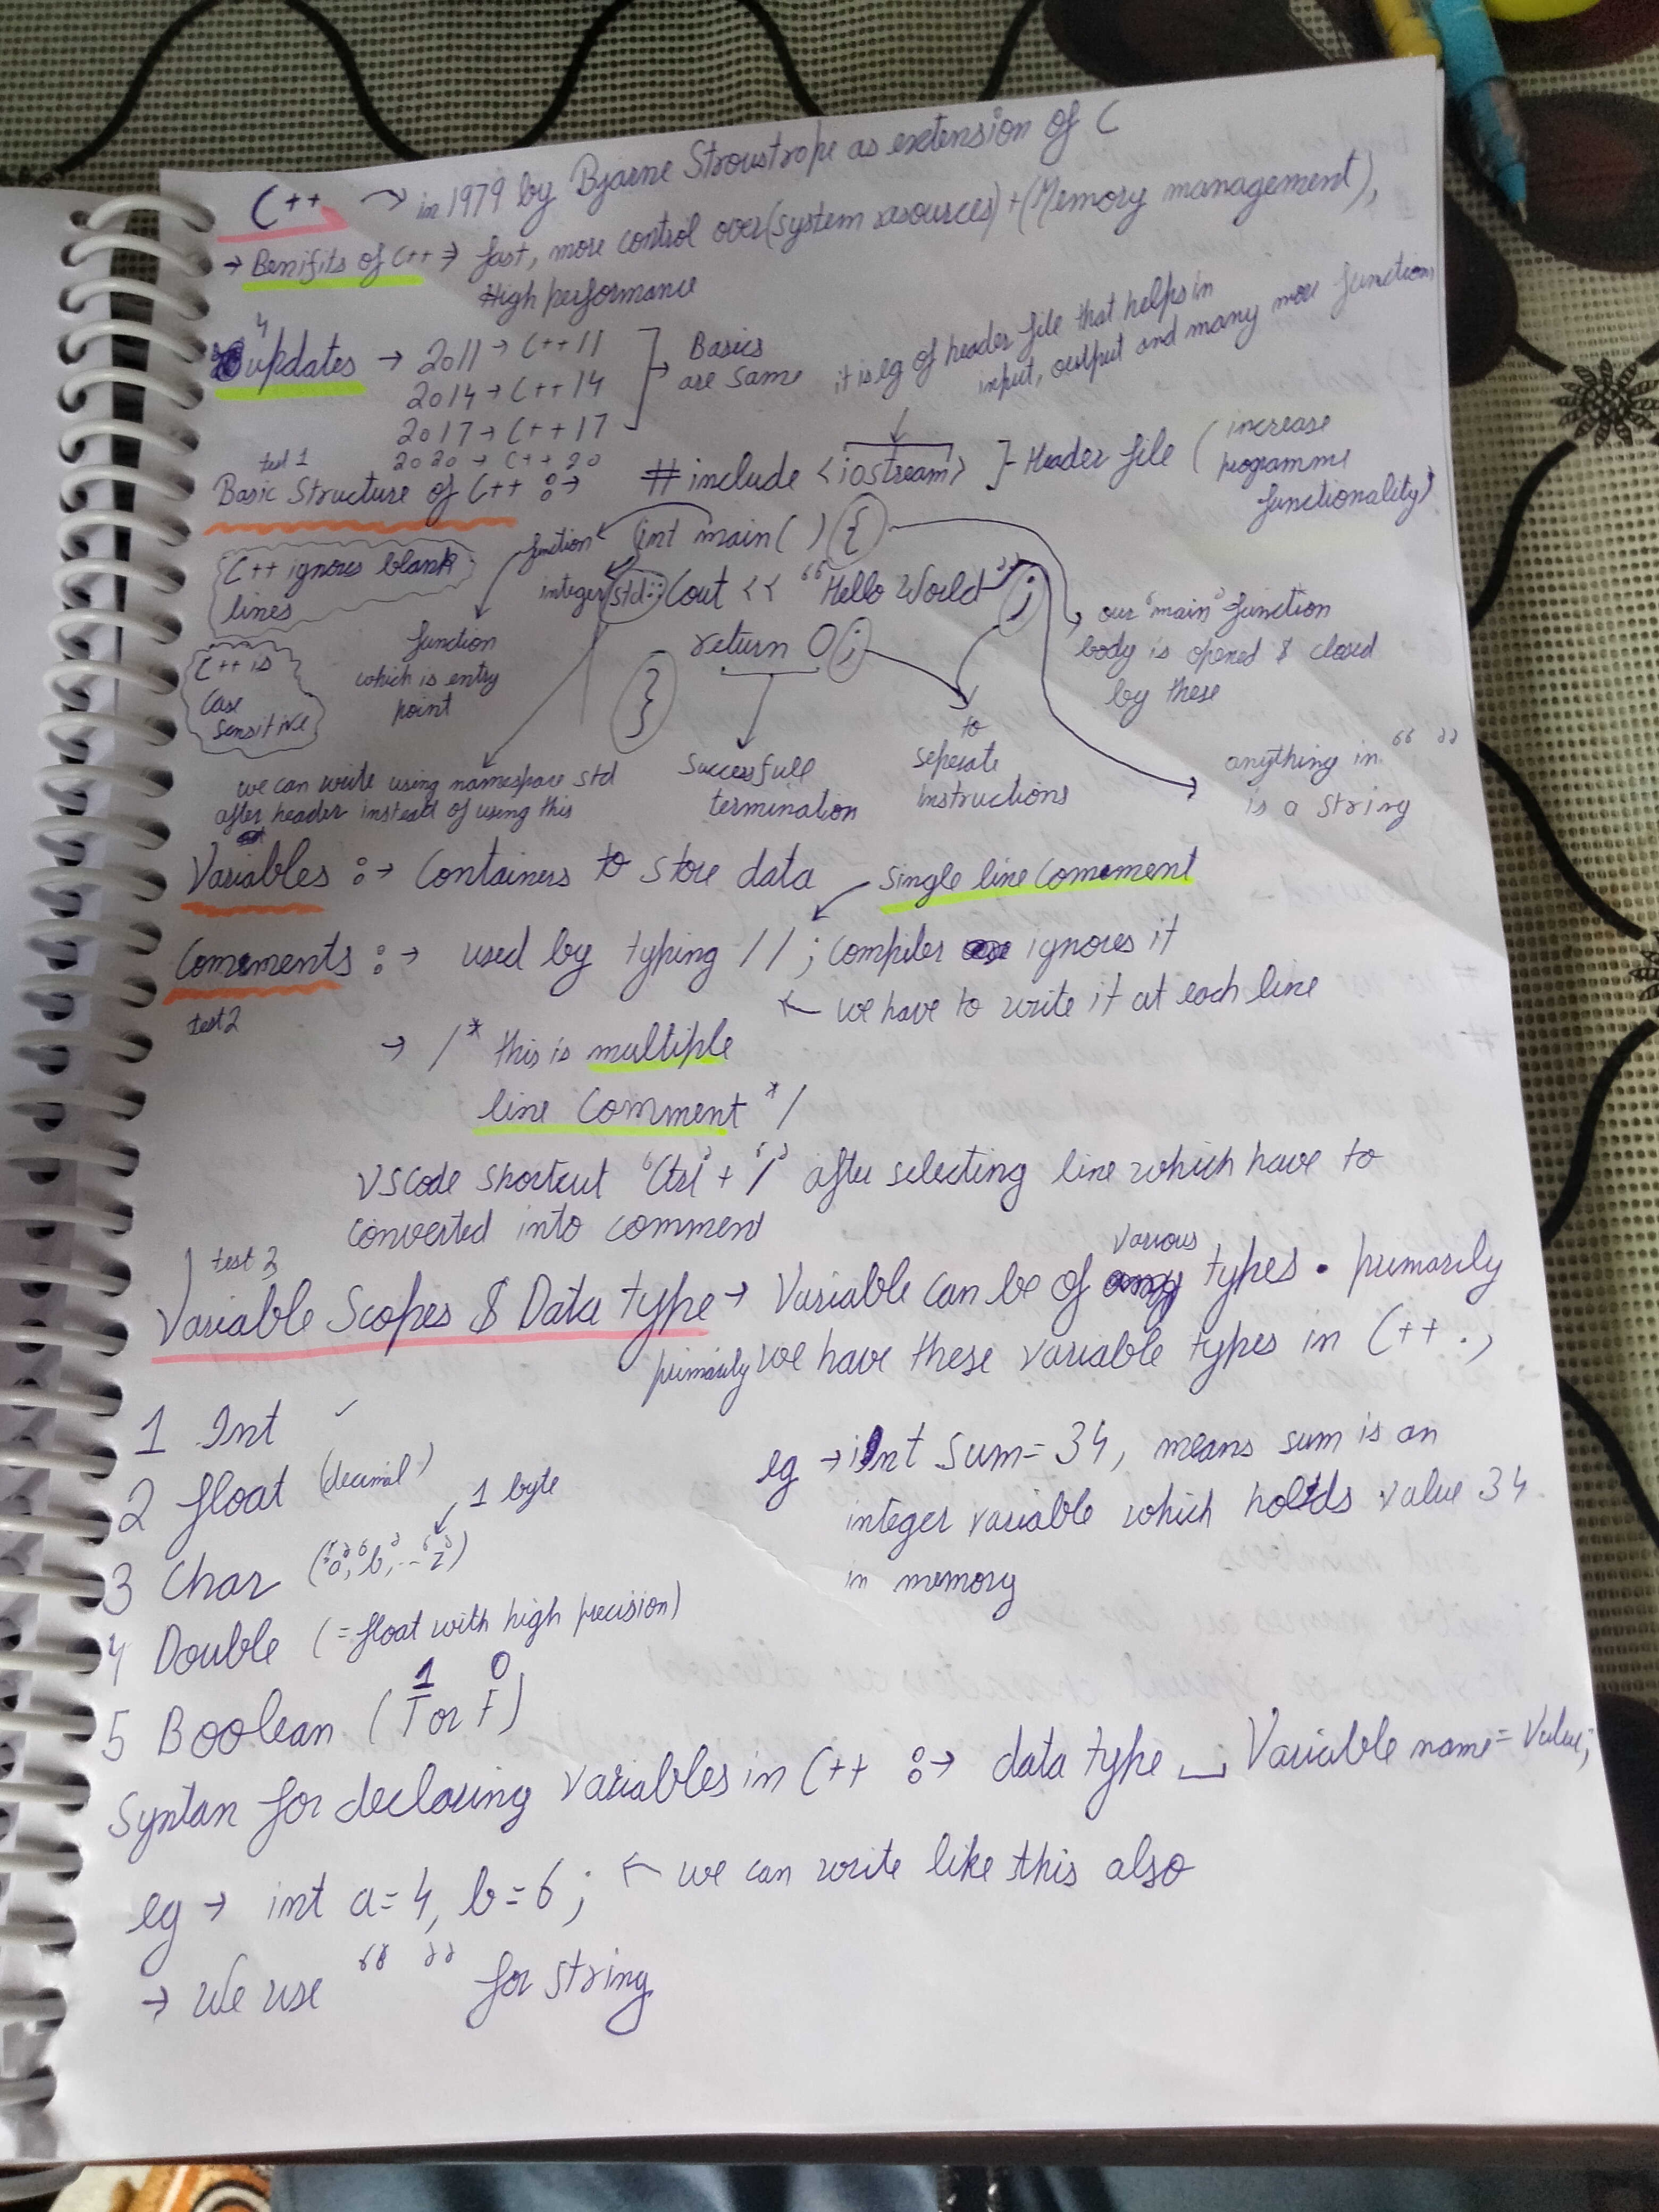 C++ → in 1979 by Bjarne Stroustrope as extension of C
→ Benifits of C++ → fast, more control over (system resources) + (Memory management),
High performance
4 updates → 2011 → C++11
2014 → C++14
2017 → C++17
2020 → C++20
Basics
are same
it is eg of header file that helps in
input, output and many more functions
test 1
Basic Structure of C++ :→
# include <iostream> ]- Header file (increase
programme
functionality)
function ← int main( ) {
integer std::Cout << "Hello World" ;
return 0 ;
}
C++ ignores blank
lines
C++ is
Case
Sensitive
function
which is entry
point
our 'main' function
body is opened & closed
by these
we can write using namespace std
after header instead of using this
Successfull
termination
to
seperate
instructions
anything in “ ”
is a string
Variables :→ Containers to store data
single line Comment
Comments :→ used by typing // ; Compiler ignores it
test 2
← we have to write it at each line
→ /* this is multiple
line Comment */
VS Code shortcut 'Ctrl' + '/' after selecting line which have to
Converted into comment
test 3
Variable Scopes & Data type → Variable can be of various types. primarily
primarily we have these variable types in C++ . ,
1 Int ✓
2 float (decimal)
3 Char ('a', 'b', -- 'z')
1 byte
4 Double (= float with high precision)
5 Boolean (T or F)
1 0
eg → int Sum = 34, means sum is an
integer variable which holds value 34
in memory
Syntan for declaring Variables in C++ :→ data type ⎵ Variable name = Value;
eg → int a=4, b=6 ; ← we can write like this also
→ We use “ ” for string